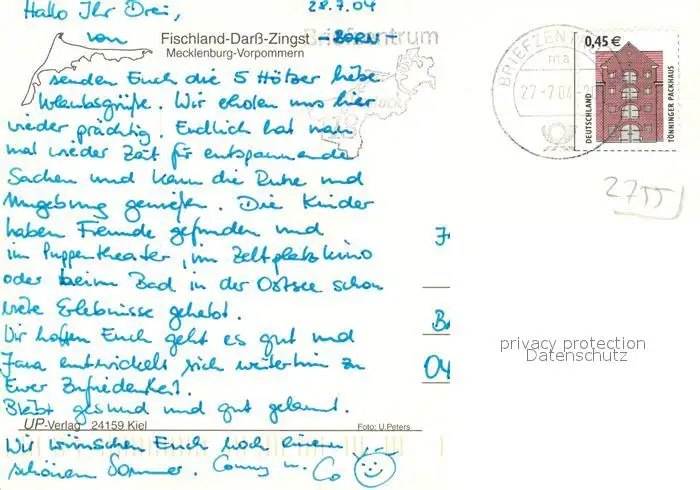 Hallo Ihr Drei,
28.7.04
von Fischland-Darß-Zingst - BORN -
Mecklenburg-Vorpommern
Briefzentrum
senden Euch die 5 Hötzer liebe
Urlaubsgrüße. Wir erholen uns hier
wieder prächtig. Endlich hat man
mal wieder Zeit für entspannende
Sachen und kann die Ruhe und
Umgebung genießen. Die Kinder
haben Freunde gefunden und
im Puppentheater, im Zeltplatzkino
oder beim Bad in der Ostsee schon
viele Erlebnisse gehabt.
Wir hoffen Euch geht es gut und
Jana entwickelt sich weiterhin zu
Eurer Zufriedenheit.
Bleibt gesund und gut gelaunt.
UP-Verlag 24159 Kiel
Foto: U.Peters
Wir wünschen Euch noch einen
schönen Sommer. Conny u. Co
BRIEFZEN
ma
27.-7.04
0,45 €
DEUTSCHLAND
TÖNNINGER PACKHAUS
2755
J
B
04
privacy protection
Datenschutz